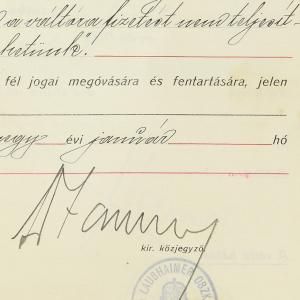 a váltóra fizetést nem teljesít-
hetünk".
fél jogai megóvására és fentartására, jelen
évi január hó
kir. közjegyző.
LAUBHAIMER